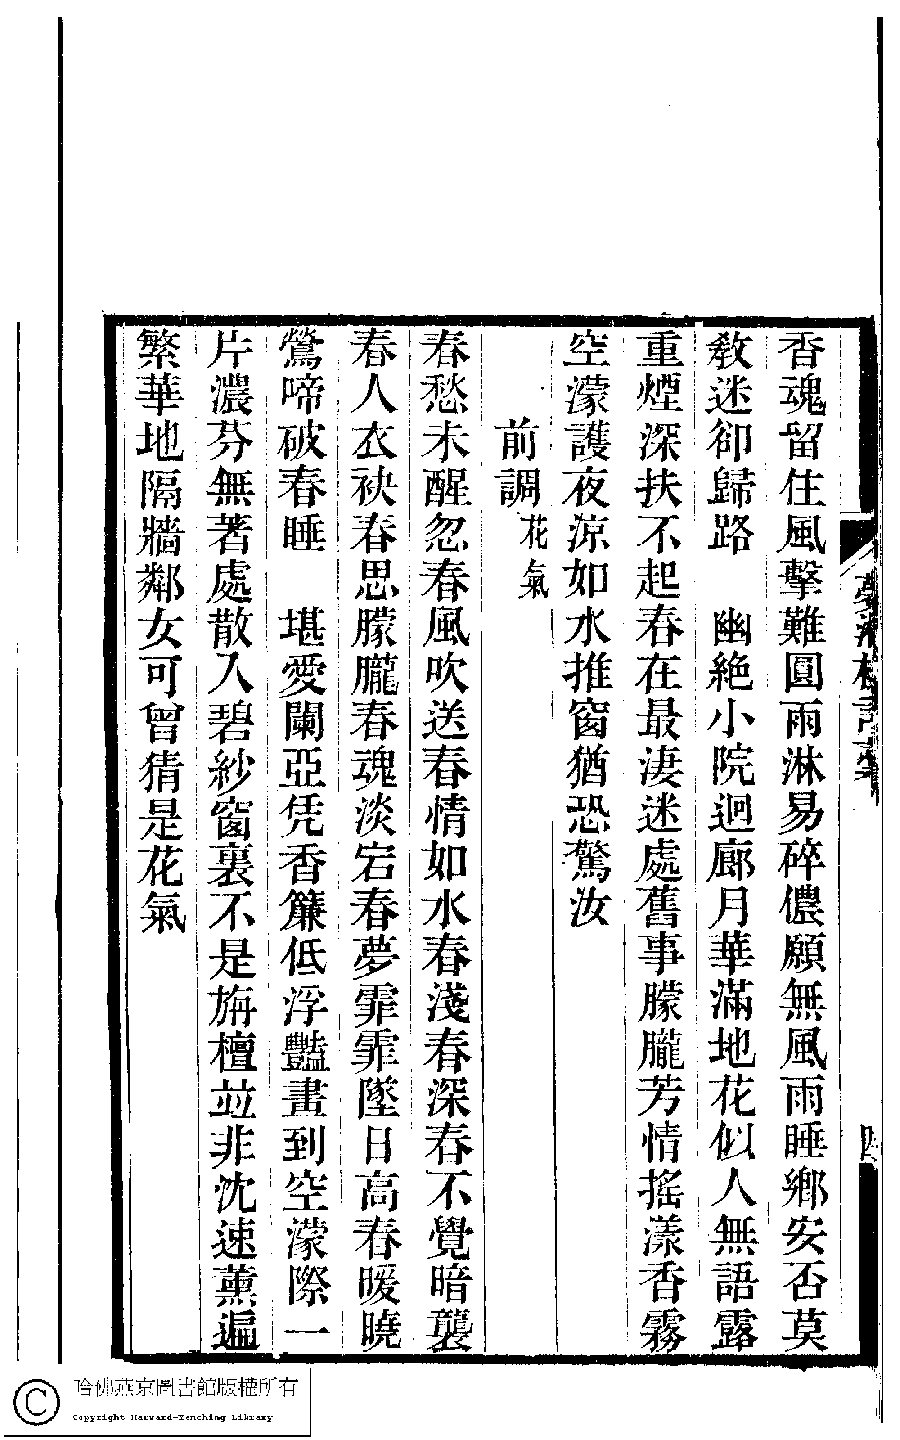 香魂留住風擊難圓雨淋易碎儂願無風雨睡鄉安否莫
敎迷卻歸路　幽絶小院迴廊月華滿地花似人無語露
重煙深扶不起春在最淒迷處舊事朦朧芳情搖漾香霧
空濛護夜涼如水推窗猶恐驚汝
前調花氣
春愁未醒忽春風吹送春情如水春淺春深春不覺暗襲
春人衣袂春思朦朧春魂淡宕春夢霏霏墜日高春暖曉
鶯啼破春睡　堪愛闌亞凭香簾低浮豔畫到空濛際一
片濃芬無著處散入碧紗窗裏不是旃檀並非沈速薰遍
繁華地隔牆鄰女可曾猜是花氣
四
哈佛燕京圖書館版權所有
Copyright Harvard-Yenching Library